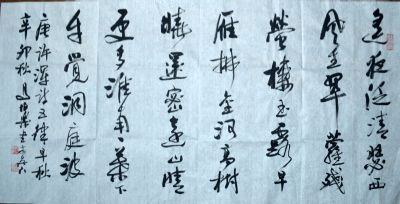 遙夜泛清瑟西
風生翠蘿殘
螢棲玉露早
雁拂金河高樹
曉還密遠山晴
更多淮南一葉下
自覺洞庭波
唐許渾詩五律早秋
辛卯秋